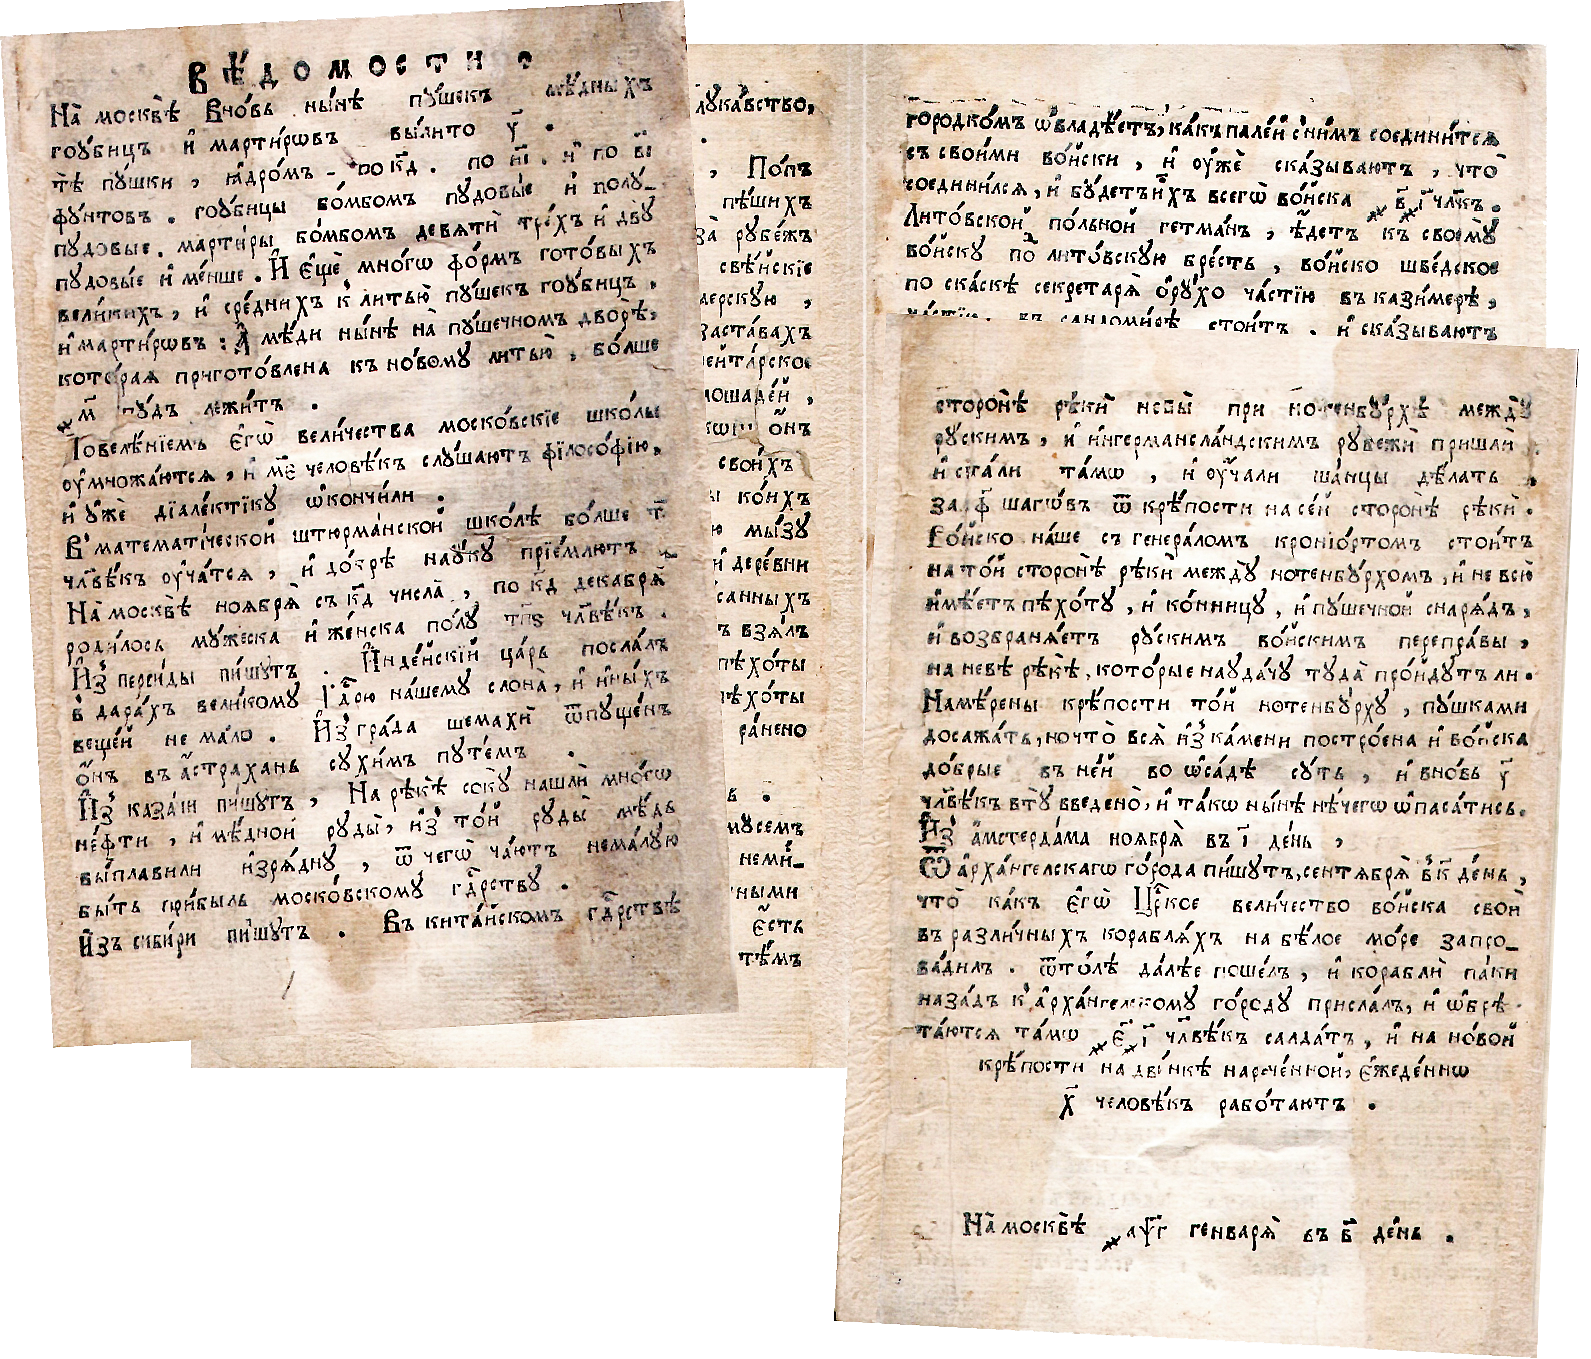 ВѢ́ДОМОСТИ .
На̀ москвѣ̀ Вно́вь ны́нѣ пу́шекъ мѣ́дныхъ
гоу́бицъ и҆ марти́рѡвъ вы́лито у҃ .
тѣ̀ пушки , ꙗ҆дро́мъ - по к҃д . по и҃і . и҆ по в҃і
фу́нтовъ . гоу́бицы бо́мбомъ пудовы́е и҆ полу_
пудовые . марти́ры бо́мбомъ девятѝ тре́хъ и҆ дву
пудовы́е и҆ ме́нше . И҆ є҆щѐ мно́гѡ фо́рмъ гото́выхъ
вели́кихъ , и҆ сре́днихъ к̾ литью̀ пу́шекъ гоу́бицъ .
и҆ марти́рѡвъ : А҆ мѣ́ди ны́нѣ на̀ пу́шечномъ дворѣ̀,
кото́рая приготовлена къ но́вому литью̀ , бо́лше
҂м҃ пу́дъ лежи́тъ .
Повелѣ́нїемъ є҆гѡ̀ вели́чества моско́вскїе шко́лы
оу҆множа́ются , и҆ м҃е человѣ́къ слу́шаютъ фїлосо́фїю,
и҆ у҆жѐ дїале́ктїку ѡ҆кончи́ли .
В̾ математі́ческой штюрма́нской шко́лѣ бо́лше т҃
члв҃ѣкъ оу҆ча́тся , и҆ до́брѣ нау́ку прїе́млютъ .
На̀ москвѣ̀ ноября̀ съ к҃д числа̀ , по к҃д декабря̀
роди́лось му́жеска и҆ же́нска по́лу т҃пѕ члв҃ѣкъ .
И҆з̾ перси́ды пи́шутъ . И҆нде́йскїй ца́рь посла́лъ
в̾ дара́хъ вели́кому гд҃рю на́шему слона̀, и҆ и҆ны́хъ
веще́й нема́ло . И҆з̾ гра́да шемахѝ ѿпу́щенъ
о҆́нъ въ а҆́страхань сухи́мъ путе́мъ .
И҆з̾ каза́ни пи́шутъ , На рѣкѣ̀ соку̀ нашлѝ мно́гѡ
не́фти , и҆ мѣ́дной руды̀, и҆з̾ то́й руды̀ мѣ́дь
вы́плавили и҆зря́дну , ѿ чегѡ̀ ча́ютъ нема́лую
бы́ть при́быль моско́вскому гд҃рству .
И҆зъ сиби́ри пи́шутъ . Въ кита́йскомъ гд҃рствѣ
лука́вство,
.
, По́пъ
пѣ́шихъ
за̀ рубе́жъ
свѣ́йскїе
герскую ,
заста́вахъ
рейта́рское
лошаде́й ,
о҆́нъ
свои́хъ
ко́ихъ
мы́зу
и дере́вни
санныхъ
ъ взя́лъ
пѣхо́ты
пѣхо́ты
ра́нено
ь .
мусемъ
неми̑_
ными
є҆́сть
тѣ́мъ
городко́мъ ѡ҆владѣ́етъ, ка́къ пале́й с̾ни́мъ соедини́тся
съ свои́ми во́йски , и҆ оу҆жѐ ска́зываютъ , что̀
соедини́лся, и҆ бу́детъ и҆́хъ всегѡ̀ во́йска ҂в҃ ҂г҃ члв҃къ .
Лито́вской по́льной гетма́нъ , ѣ҆́детъ къ своему̀
во́йску по̀д литовскую бре́сть , во́йско шве́дское
по ска́скѣ секретаря̀ о҆ру́хо ча́стїю въ казимерѣ,
ча́стїю . въ сандоми́рѣ стои́тъ . и҆ ска́зываютъ
сторонѣ̀ рѣкѝ невы̀ при но́тенбурхѣ между̀
ру́скимъ , и҆ и҆нгерманла́ндскимъ рубежѝ пришлѝ
и҆ ста́ли та́мѡ , и҆ оу҆ча́ли ша́нцы дѣ́лать .
за ф҃ шагѡ́въ ѿ крѣ́пости на се́й сторонѣ̀ рѣкѝ .
Во́йско на́ше съ генера́ломъ кронїо́ртомъ стои́тъ
на то́й сторонѣ̀ рѣкѝ между̀ нотенбу́рхомъ , и҆ не всю̀
и҆мѣ́етъ пѣхо́ту , и҆ ко́нницу , и҆ пу́шечной снаря́дъ ,
и҆ возбраня́етъ ру́скимъ во́йскимъ перепра́вы ,
на невѣ̀ рѣкѣ̀, кото́рые наудачу туда̀ про́йдутъ ли .
Намѣ́рены крѣ́пости то́й нотенбу́рху , пу́шками
досажа́ть, но что̀ вся̀ и҆з̾ ка́мени постро́ена и҆ во́йска
до́брые въ не́й во ѡ҆са́дѣ су́ть , и҆ вно́вь у҃
члв҃ѣкъ в̾ ту̀ введено̀, и҆ та́кѡ ны́нѣ не́чегѡ ѡ҆паса́тись .
И҆з̾ а҆мстерда́ма ноября̀ въ і҃ де́нь ,
Ѿ а҆рха́нгелскагѡ го́рода пи́шутъ, сентября̀ в̾ к҃ де́нь ,
что̀ ка́къ є҆гѡ̀ Цр҃кое вели́чество во́йска своѝ
въ разли́чныхъ корабля́хъ на бѣ́лое мо́ре запро_
ва́дилъ . ѿто́лѣ да́лѣе поше́лъ , и҆ кораблѝ па́ки
наза́дъ к̾ а҆рха́нгелскому го́роду присла́лъ, и҆ ѡ҆брѣ_
та́ются та́мѡ ҂є҃ ҂і҃ члв҃ѣкъ салда́тъ , и҆ на но́вой
крѣ́пости на дви́нкѣ нарече́нной, є҆жеде́ннѡ
х҃ человѣ́къ рабо́таютъ .
На̀ москвѣ̀ ҂аѱ҃г генваря̀ въ в҃ де́нь .